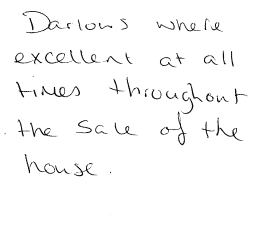 Darlows where
excellent at all
times throughout
the sale of the
house.